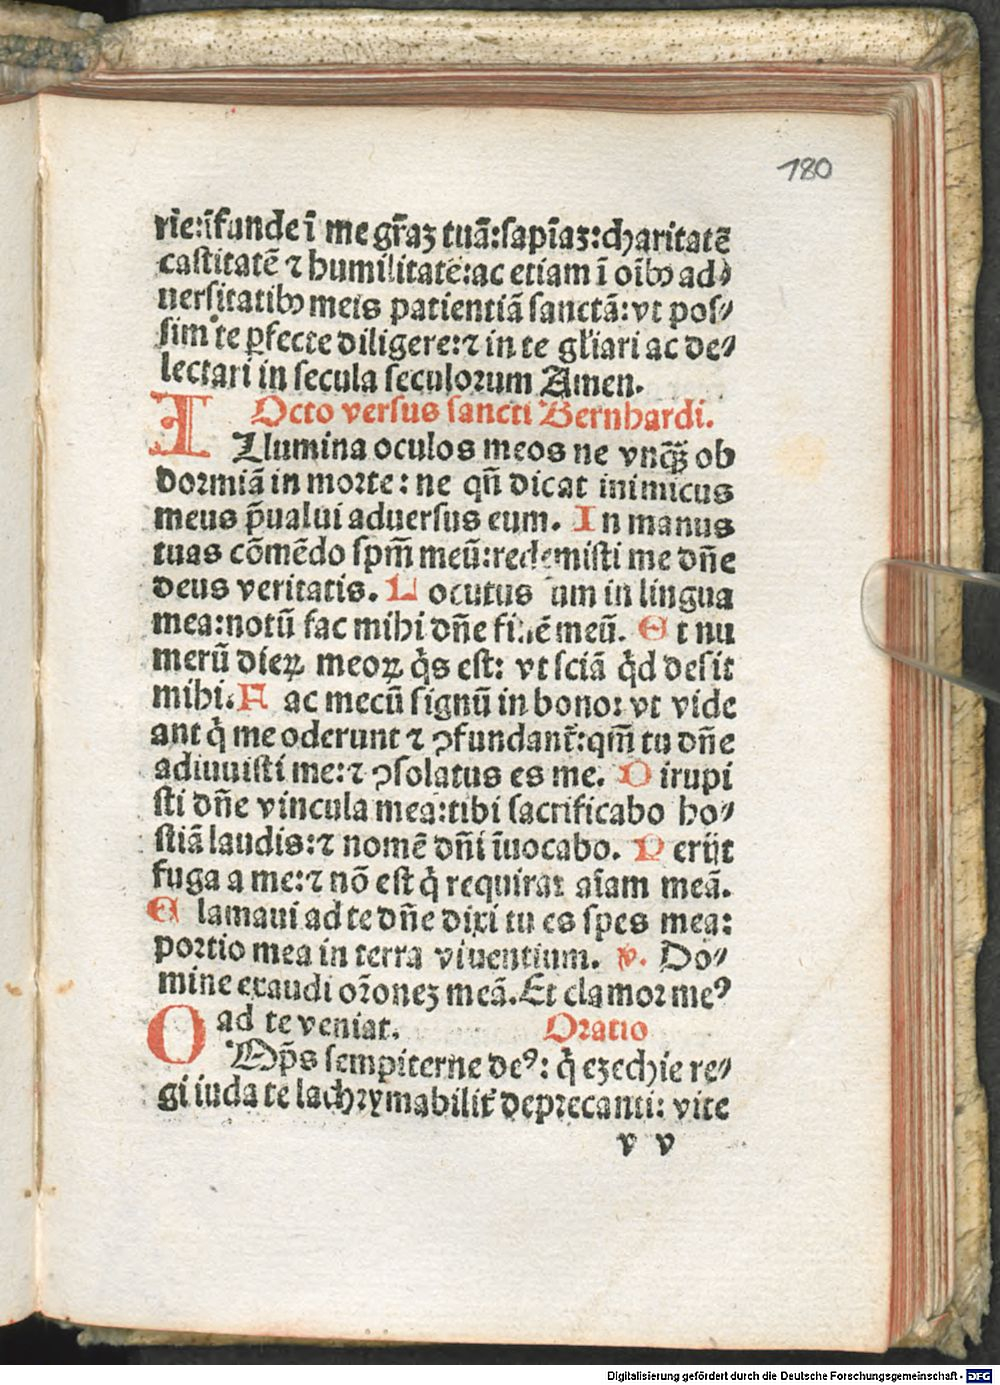 180
rie:ĩfunde ĩ me gr̃aꝫ tuã:sapĩaꝫ:charitatẽ
castitatẽ ⁊ humilitatẽ:ac etiam ĩ oĩbꝰ ad⸗
uersitatibꝰ meis patientiã sanctã:vt pos⸗
sim te ꝑfecte diligere:⁊ in te gl̃iari ac de⸗
lectari in secula seculorum Amen.
Octo versus sancti Bernhardi.
IIlumina oculos meos ne vnqꝫ̃ ob
dormiã in morte: ne qñ dicat inimicus
meus p̃ualui aduersus eum. In manus
tuas cõmẽdo spm̃ meũ:redemisti me dñe
deus veritatis. Locutus um in lingua
mea:notũ fac mihi dñe fi..ẽ meũ. Et nu
merũ dieꝝ meoꝝ q̇s est: vt sciã q̇d desit
mihi. Fac mecũ signũ in bono: vt vide
ant q̇ me oderunt ⁊ ꝯfundant̃:qm̃ tu dñe
adiuuisti me:⁊ ꝯsolatus es me. Dirupi
sti dñe vincula mea:tibi sacrificabo ho⸗
stiã laudis:⁊ nomẽ dñi ĩuocabo. Perijt
fuga a me:⁊ nõ est q̇ requirat aĩam meã.
Clamaui ad te dñe dixi tu es spes mea:
portio mea in terra viuentium. v. Do⸗
mine exaudi or̃oneꝫ meã. Et clamor meꝰ
ad te veniat. Oratio
OMp̃s sempiterne deꝰ: q̇ ezechie re⸗
gi iuda te lachrymabilit̃ deprecanti: vite
v v
Digitalisierung gefördert durch die Deutsche Forschungsgemeinschaft - DFG